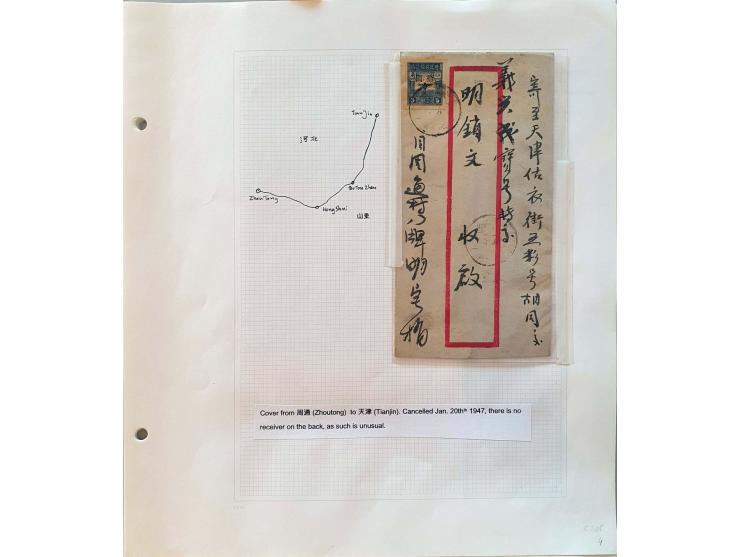 TianJin
河北
BoTou Zhen
ZhouTong
HengShui
山東
寄至天津估衣街五彩号胡同交
義兴成宝号轉交
明鎮文 收啟
自周通村八牌明宅緘
Cover from 周通 (Zhoutong) to 天津 (Tianjin). Cancelled Jan. 20thth 1947, there is no
receiver on the back, as such is unusual.
4